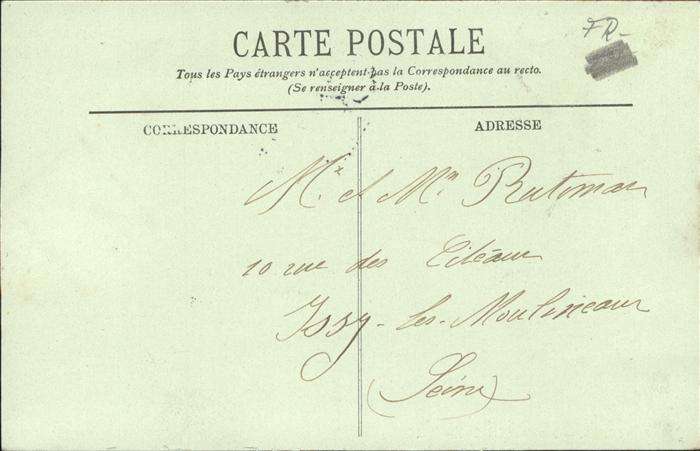 CARTE POSTALE
FR-
Tous les Pays étrangers n'acceptent pas la Correspondance au recto.
(Se renseigner à la Poste).
CORRESPONDANCE
ADRESSE
Mr. et Mme
10 rue des
Issy-les-Moulineaux
(Seine)